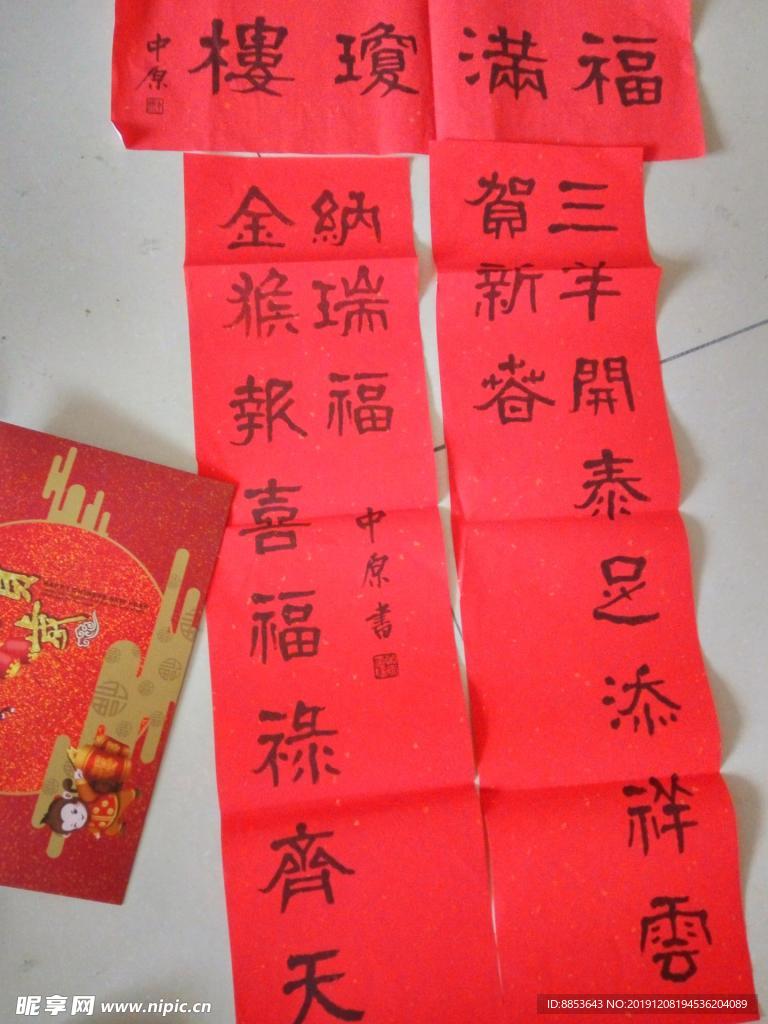 福滿瓊樓
中原
三羊開泰足添祥雲
賀新春
金猴報喜福祿齊天
納瑞福
中原書
昵享网 www.nipic.cn
ID:8853643 NO:20191208194536204089